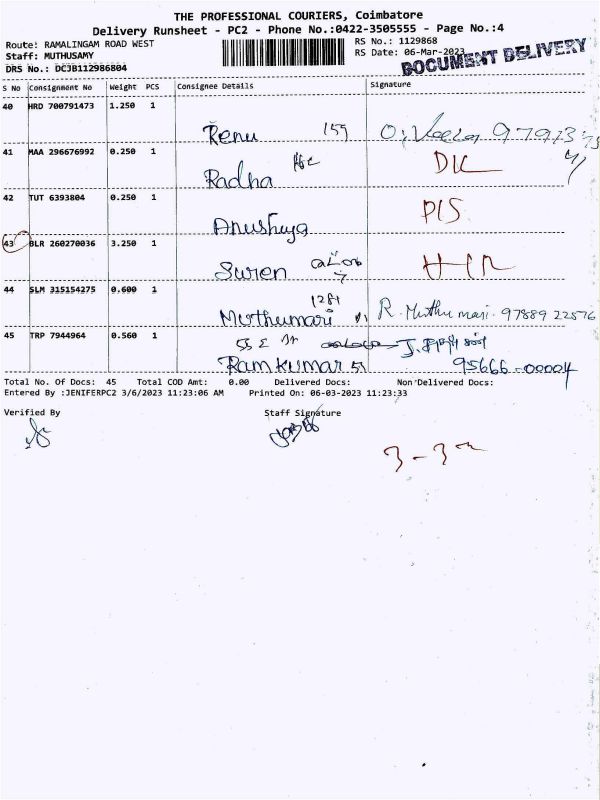 THE PROFESSIONAL COURIERS, Coimbatore
Delivery Runsheet - PC2 - Phone No.:0422-3505555 - Page No.:4
Route: RAMALINGAM ROAD WEST
Staff: MUTHUSAMY
DRS No.: DCJB112986804
RS No.: 1129868
RS Date: 06-Mar-2023
DOCUMENT DELIVERY
S No Consignment No Weight PCS Consignee Details Signature
40 HRD 700791473 1.250 1
Renu 159
41 MAA 296676992 0.250 1
Radha
42 TUT 6393804 0.250 1 PIS
Anushuya
43 BLR 260270036 3.250 1
Suren
44 SLM 315154275 0.600 1
Muthumari 1281 R. Muthu mari. 97889 22576
45 TRP 7944964 0.560 1
Ramkumar 95666-00004
Total No. Of Docs: 45 Total COD Amt: 0.00 Delivered Docs: Non Delivered Docs:
Entered By :JENIFERPC2 3/6/2023 11:23:06 AM Printed On: 06-03-2023 11:23:33
Verified By Staff Signature